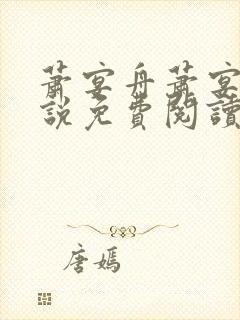 蕭宴舟蕭宴
說免費閱讀
唐嫣